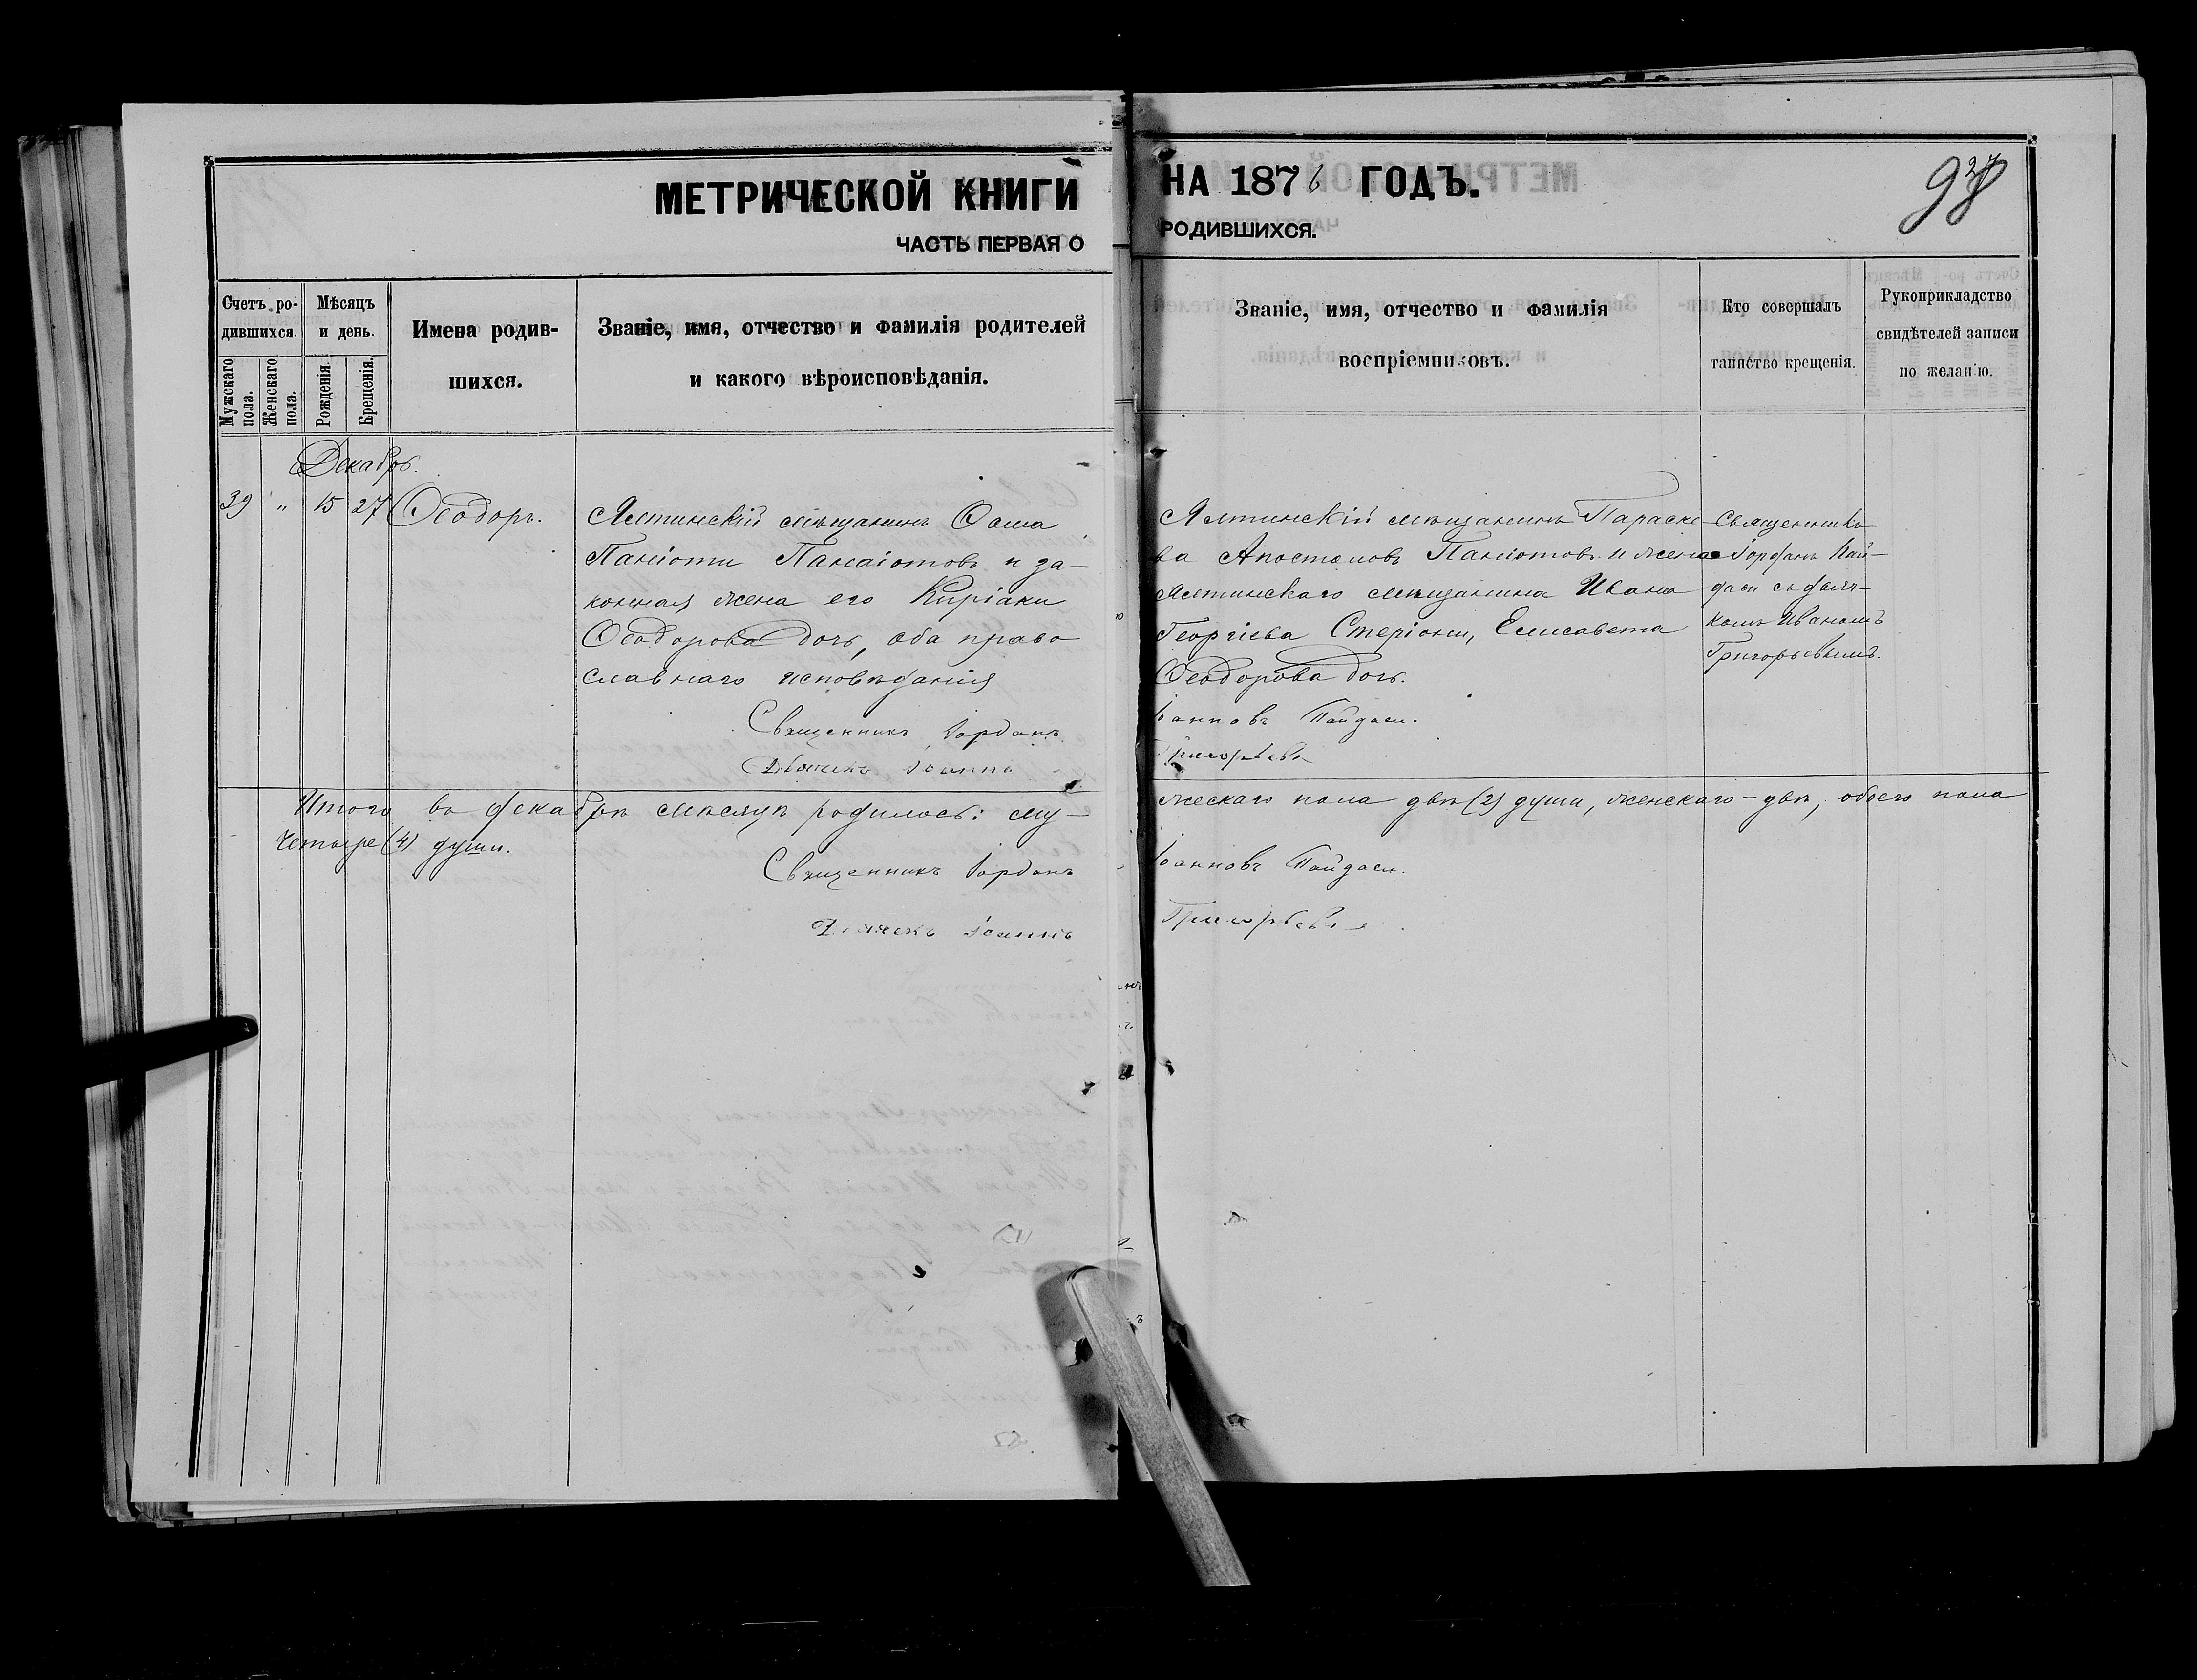 МЕТРИЧЕСКОЙ КНИГИ НА 1876 ГОДЪ.
ЧАСТЬ ПЕРВАЯ О РОДИВШИХСЯ.
98
Счетъ ро-
дившихся.
Мужскаго пола.
Женскаго пола.
Мѣсяцъ
и день.
Рожденія.
Крещенія.
Имена родив-
шихся.
Званіе, имя, отчество и фамилія родителей
и какого вѣроисповѣданія.
Званіе, имя, отчество и фамилія
воспріемниковъ.
Кто совершалъ
таинство крещенія.
Рукоприкладство
свидѣтелей записи
по желанію.
Декабрь.
39 " 15 27 Ѳеодоръ.
Ялтинскій мѣщанинъ Ѳома
Паніоти Панаіотовъ и за-
конная жена его Киріаки
Ѳеодорова дочь, оба право
славнаго исповѣданія
Священникъ Іорданъ
Дьячекъ Іоаннъ
Ялтинскій мѣщанинъ Параске-
ва Апостоловъ Паніотовъ и жена
Ялтинскаго мѣщанина Ивана
Георгіева Стеріони, Елисавета
Ѳеодорова дочь.
Іанновъ Пайдаси.
Григорьевъ
Священникъ
Іорданъ Пай-
даси съ дьяч-
комъ Иваномъ
Григорьевымъ.
Итого въ декабрѣ мѣсяцѣ родилось: му-
жескаго пола двѣ (2) души, женскаго - двѣ, обоего пола
Четыре (4) души.
Священникъ Іорданъ Іанновъ Пайдаси.
Дьячекъ Іоаннъ Григорьевъ